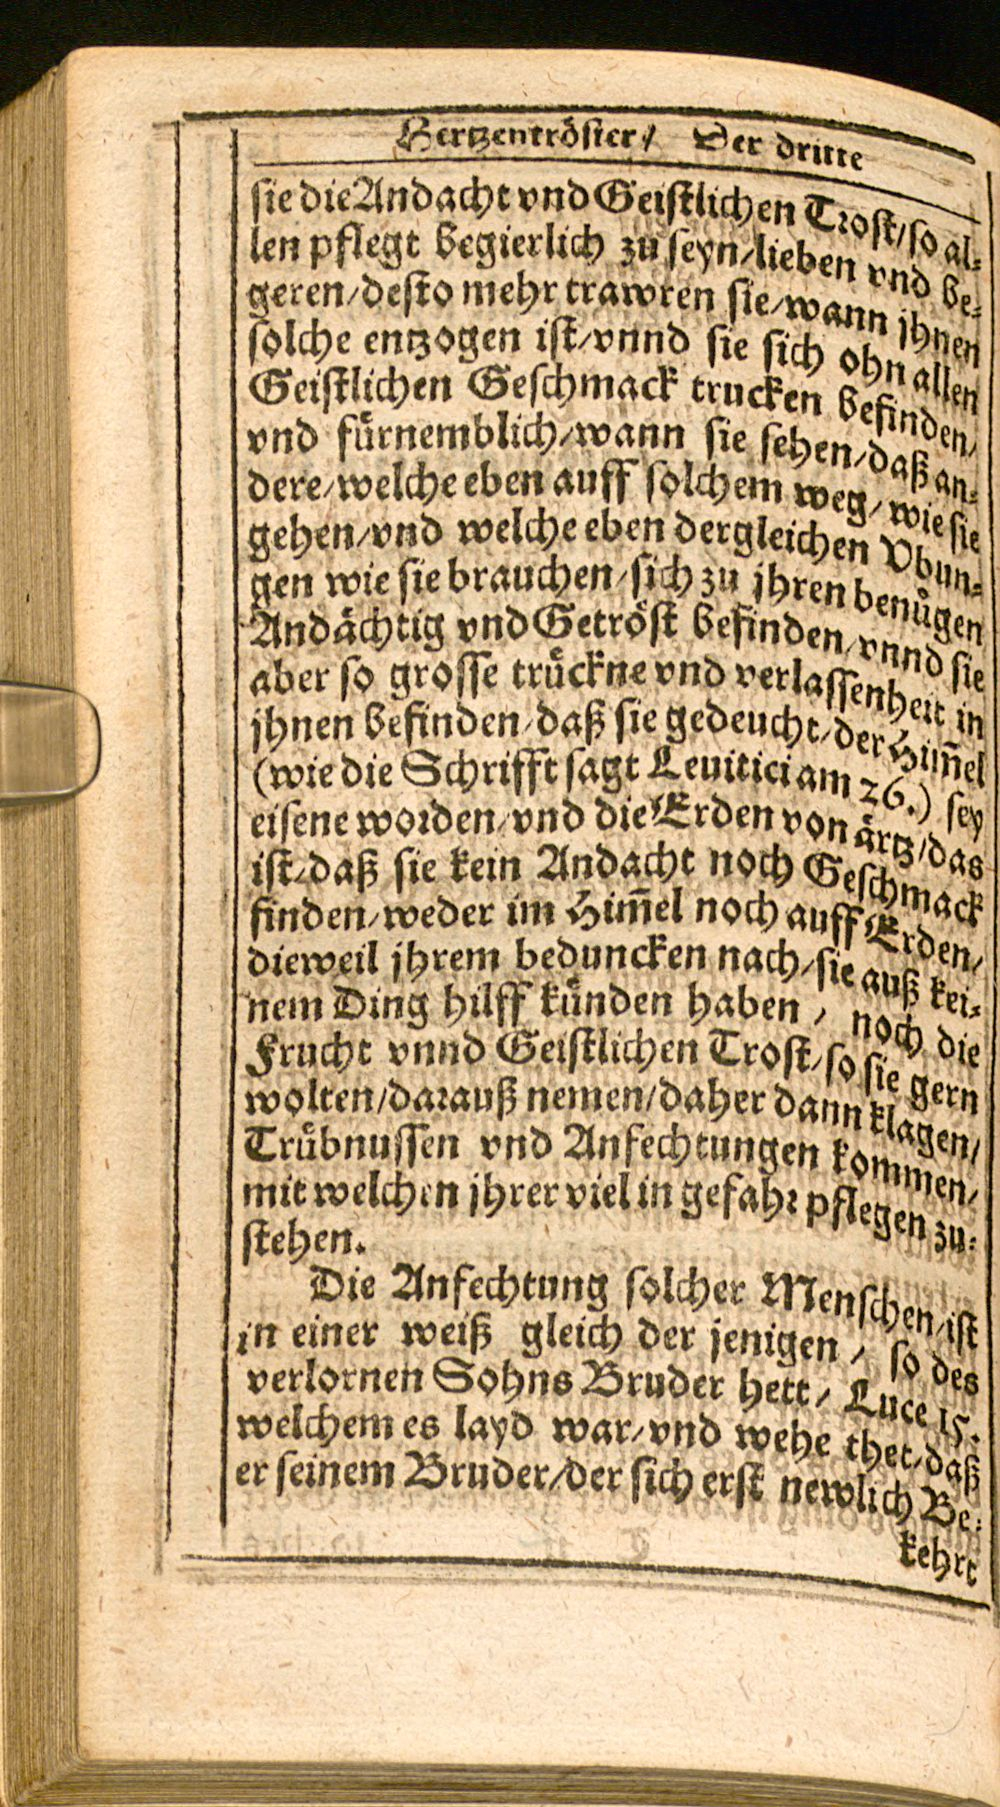 Hertzentröster/ Der dritte
sie die Andacht vnd Geistlichen Trost/so al-
len pflegt begierlich zu seyn/lieben vnd be-
geren/desto mehr trawren sie/wann jhnen
solche entzogen ist/vnnd sie sich ohn allen
Geistlichen Geschmack trucken befinden/
vnd fuͤrnemblich/wann sie sehen/daß an-
dere/welche eben auff solchem weg/wie sie
gehen/vnd welche eben dergleichen Vbun-
gen wie sie brauchen/sich zu jhren benuͤgen
Andaͤchtig vnd Getroͤst befinden/vnnd sie
aber so grosse truͤckne vnd verlassenheit in
jhnen befinden/daß sie gedeucht/der Him̄el
(wie die Schrifft sagt Leuitici am 26.) sey
eisene worden/vnd die Erden von aͤrtz/das
ist/daß sie kein Andacht noch Geschmack
finden/weder im Him̄el noch auff Erden/
dieweil jhrem beduncken nach/sie auß kei-
nem Ding hilff kuͤnden haben / noch die
Frucht vnnd Geistlichen Trost/so sie gern
wolten/darauß nemen/daher dann klagen/
Truͤbnussen vnd Anfechtungen kommen/
mit welchen jhrer viel in gefahr pflegen zu-
stehen.
Die Anfechtung solcher Menschen/ist
in einer weiß gleich der jenigen / so des
verlornen Sohns Bruder hett/ Luce 15.
welchem es layd war/vnd wehe thet/daß
er seinem Bruder/der sich erst newlich Be-
kehrt